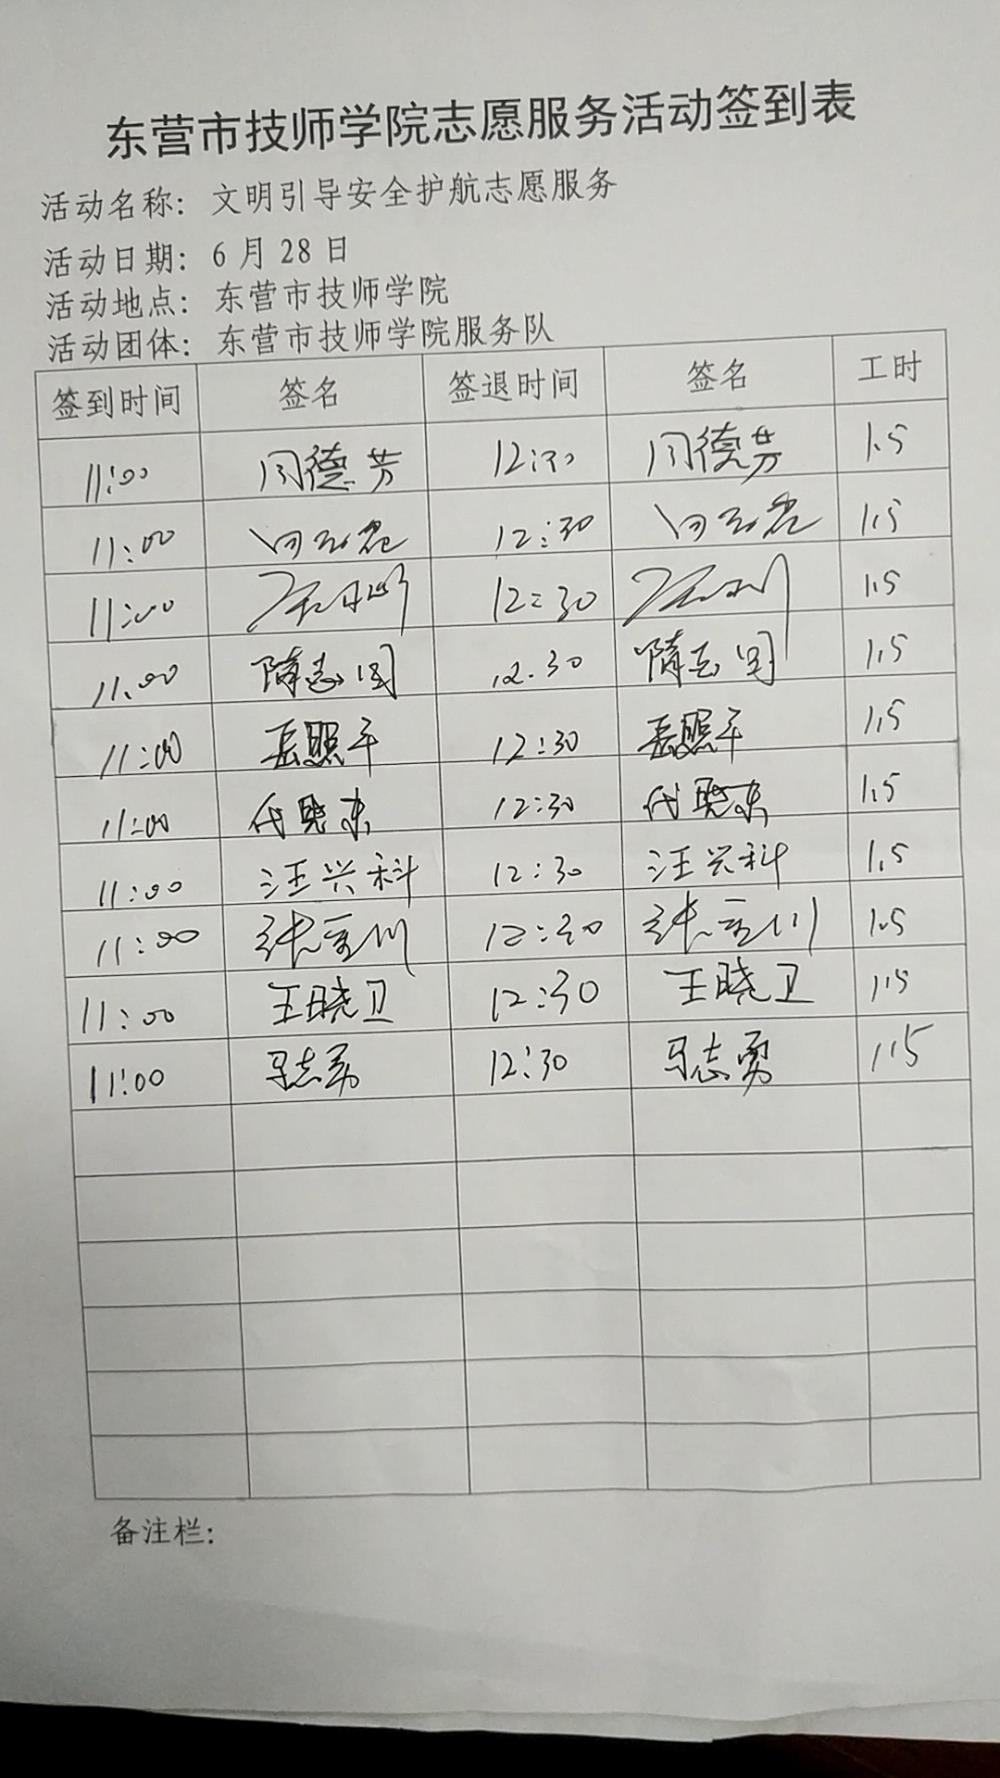 东营市技师学院志愿服务活动签到表
活动名称：文明引导安全护航志愿服务
活动日期：6月28日
活动地点：东营市技师学院
活动团体：东营市技师学院服务队
签到时间 签名 签退时间 签名 工时
11:00 闫德芳 12:30 闫德芳 1.5
11:00 12:30 1.5
11:00 12:30 1.5
11:00 隋志国 12.30 隋志国 1.5
11:00 岳照平 12:30 岳照平 1.5
11:00 代晓东 12:30 代晓东 1.5
11:00 汪兴科 12:30 汪兴科 1.5
11:00 12:30 1.5
11:00 王晓卫 12:30 王晓卫 1.5
11:00 马志勇 12:30 马志勇 1.5
备注栏：